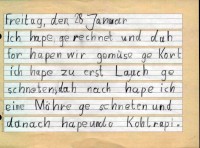 freitag, den 28 Januar
ich hape gerechnet und dah
for hapen wir gemüse ge Kort
ich hape zu erst Lauch ge
schneten, dah nach hape ich
eine Möhre ge schneten und
danach hape Kohlrapi.